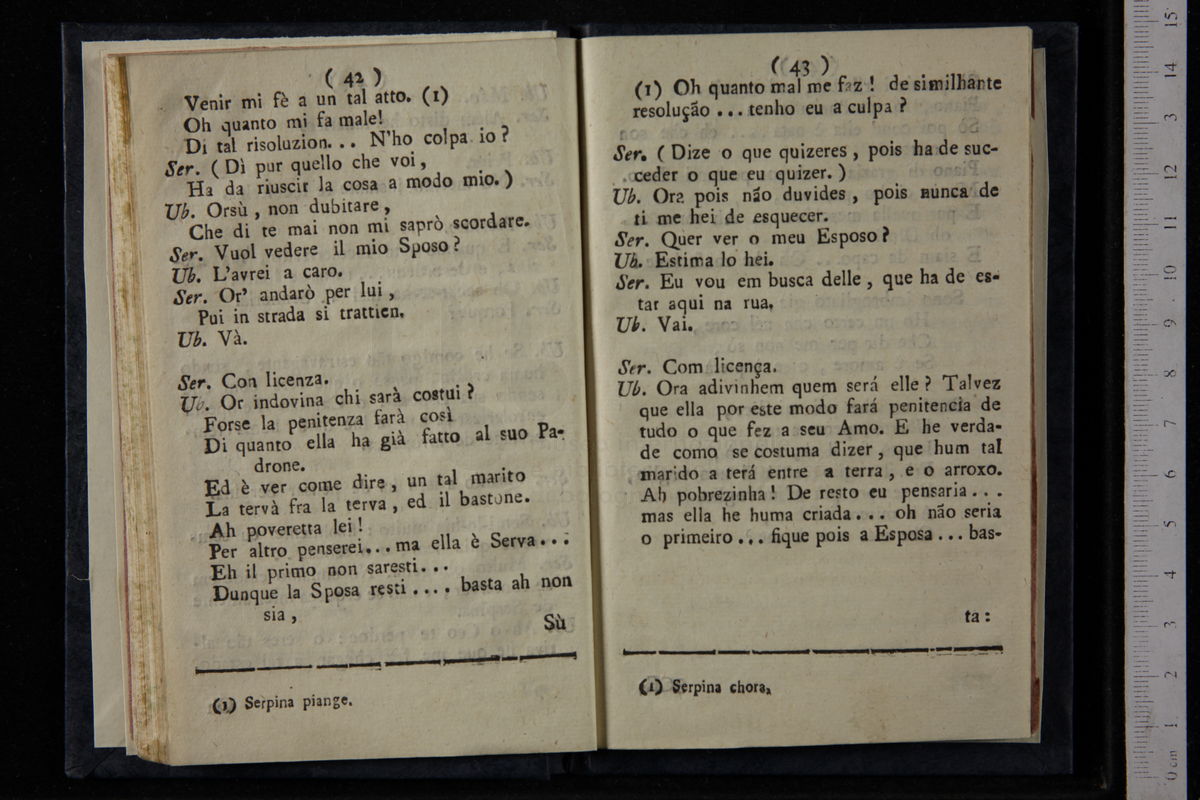 ( 42 )
Venir mi fè a un tal atto. (1)
Oh quanto mi fa male!
Di tal risoluzion... N'ho colpa io?
Ser. (Dì pur quello che voi,
Ha da riuscir la cosa a modo mio.)
Ub. Orsù, non dubitare,
Che di te mai non mi saprò scordare.
Ser. Vuol vedere il mio Sposo?
Ub. L'avrei a caro.
Ser. Or' andarò per lui,
Pui in strada si trattien.
Ub. Và.
Ser. Con licenza.
Ub. Or indovina chi sarà costui?
Forse la penitenza farà così
Di quanto ella ha già fatto al suo Pa-
drone.
Ed è ver come dire, un tal marito
La tervà fra la terva, ed il bastone.
Ah poveretta lei!
Per altro penserei...ma ella è Serva...
Eh il primo non saresti...
Dunque la Sposa resti.... basta ah non
sia,
Sù
(1) Serpina piange.
( 43 )
(1) Oh quanto mal me faz! de similhante
resolução ... tenho eu a culpa?
Ser. (Dize o que quizeres, pois ha de suc-
ceder o que eu quizer.)
Ub. Ora pois não duvides, pois nunca de
ti me hei de esquecer.
Ser. Quer ver o meu Esposo?
Ub. Estima lo hei.
Ser. Eu vou em busca delle, que ha de es-
tar aqui na rua.
Ub. Vai.
Ser. Com licença.
Ub. Ora adivinhem quem será elle? Talvez
que ella por este modo fará penitencia de
tudo o que fez a seu Amo. E he verda-
de como se costuma dizer, que hum tal
marido a terá entre a terra, e o arroxo.
Ah pobrezinha! De resto eu pensaria...
mas ella he huma criada... oh não seria
o primeiro... fique pois a Esposa... bas-
ta:
(1) Serpina chora.
15
14
3
12
11
10
9
8
7
6
5
4
3
2
1
0 cm